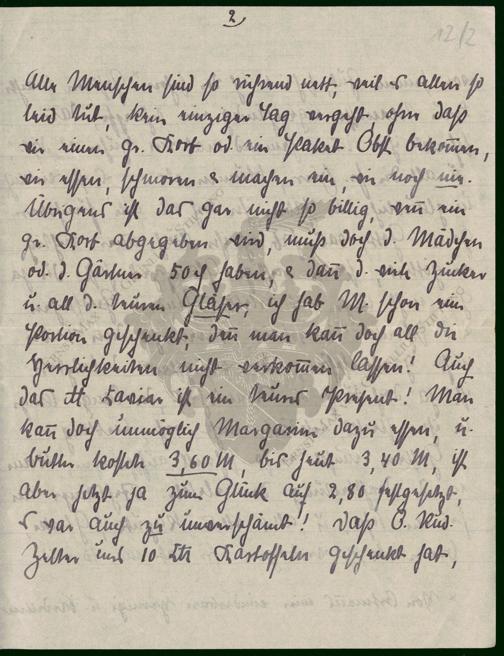 2
12/2
Alle Menschen sind so rührend nett, weil es allen so
leid tut, kein einziger Tag vergeht ohne daß
wir einen gr. Korb od. ein Paket Obst bekom̅en,
wir essen, schmoren & machen ein, wie noch nie.
Übrigens ist das gar nicht so billig, wen̅ ein
gr. Korb abgegeben wird, muß doch d. Mädchen
od. d. Gärtner 50 ₰ haben, & dan̅ d. viele Zucker
u. all d. teuren Gläser, ich hab M. schon eine
Portion geschenkt, den̅ man kan̅ doch all die
Herrlichkeiten nicht verkom̅en lassen! Auch
das ℔ Kaviar ist ein teures Present! Man
kan̅ doch unmöglich Margarine dazu essen, u.
butter kostete 3,60 M, bis heut 3,40 M, ist
aber jetzt ja zum Glück auf 2,80 festgesetzt,
es war auch zu unverschämt! Daß O. Rud.
Zelter uns 10 Ctr Kartoffeln geschenkt hat,